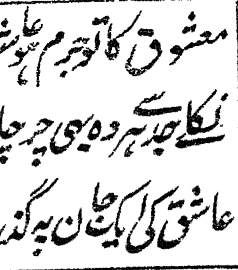 معشوق کا تو جرم ہو عاش
نکلے جدہر سے وہ یہی چرچا
عاشق کی ایک جان پہ گذر